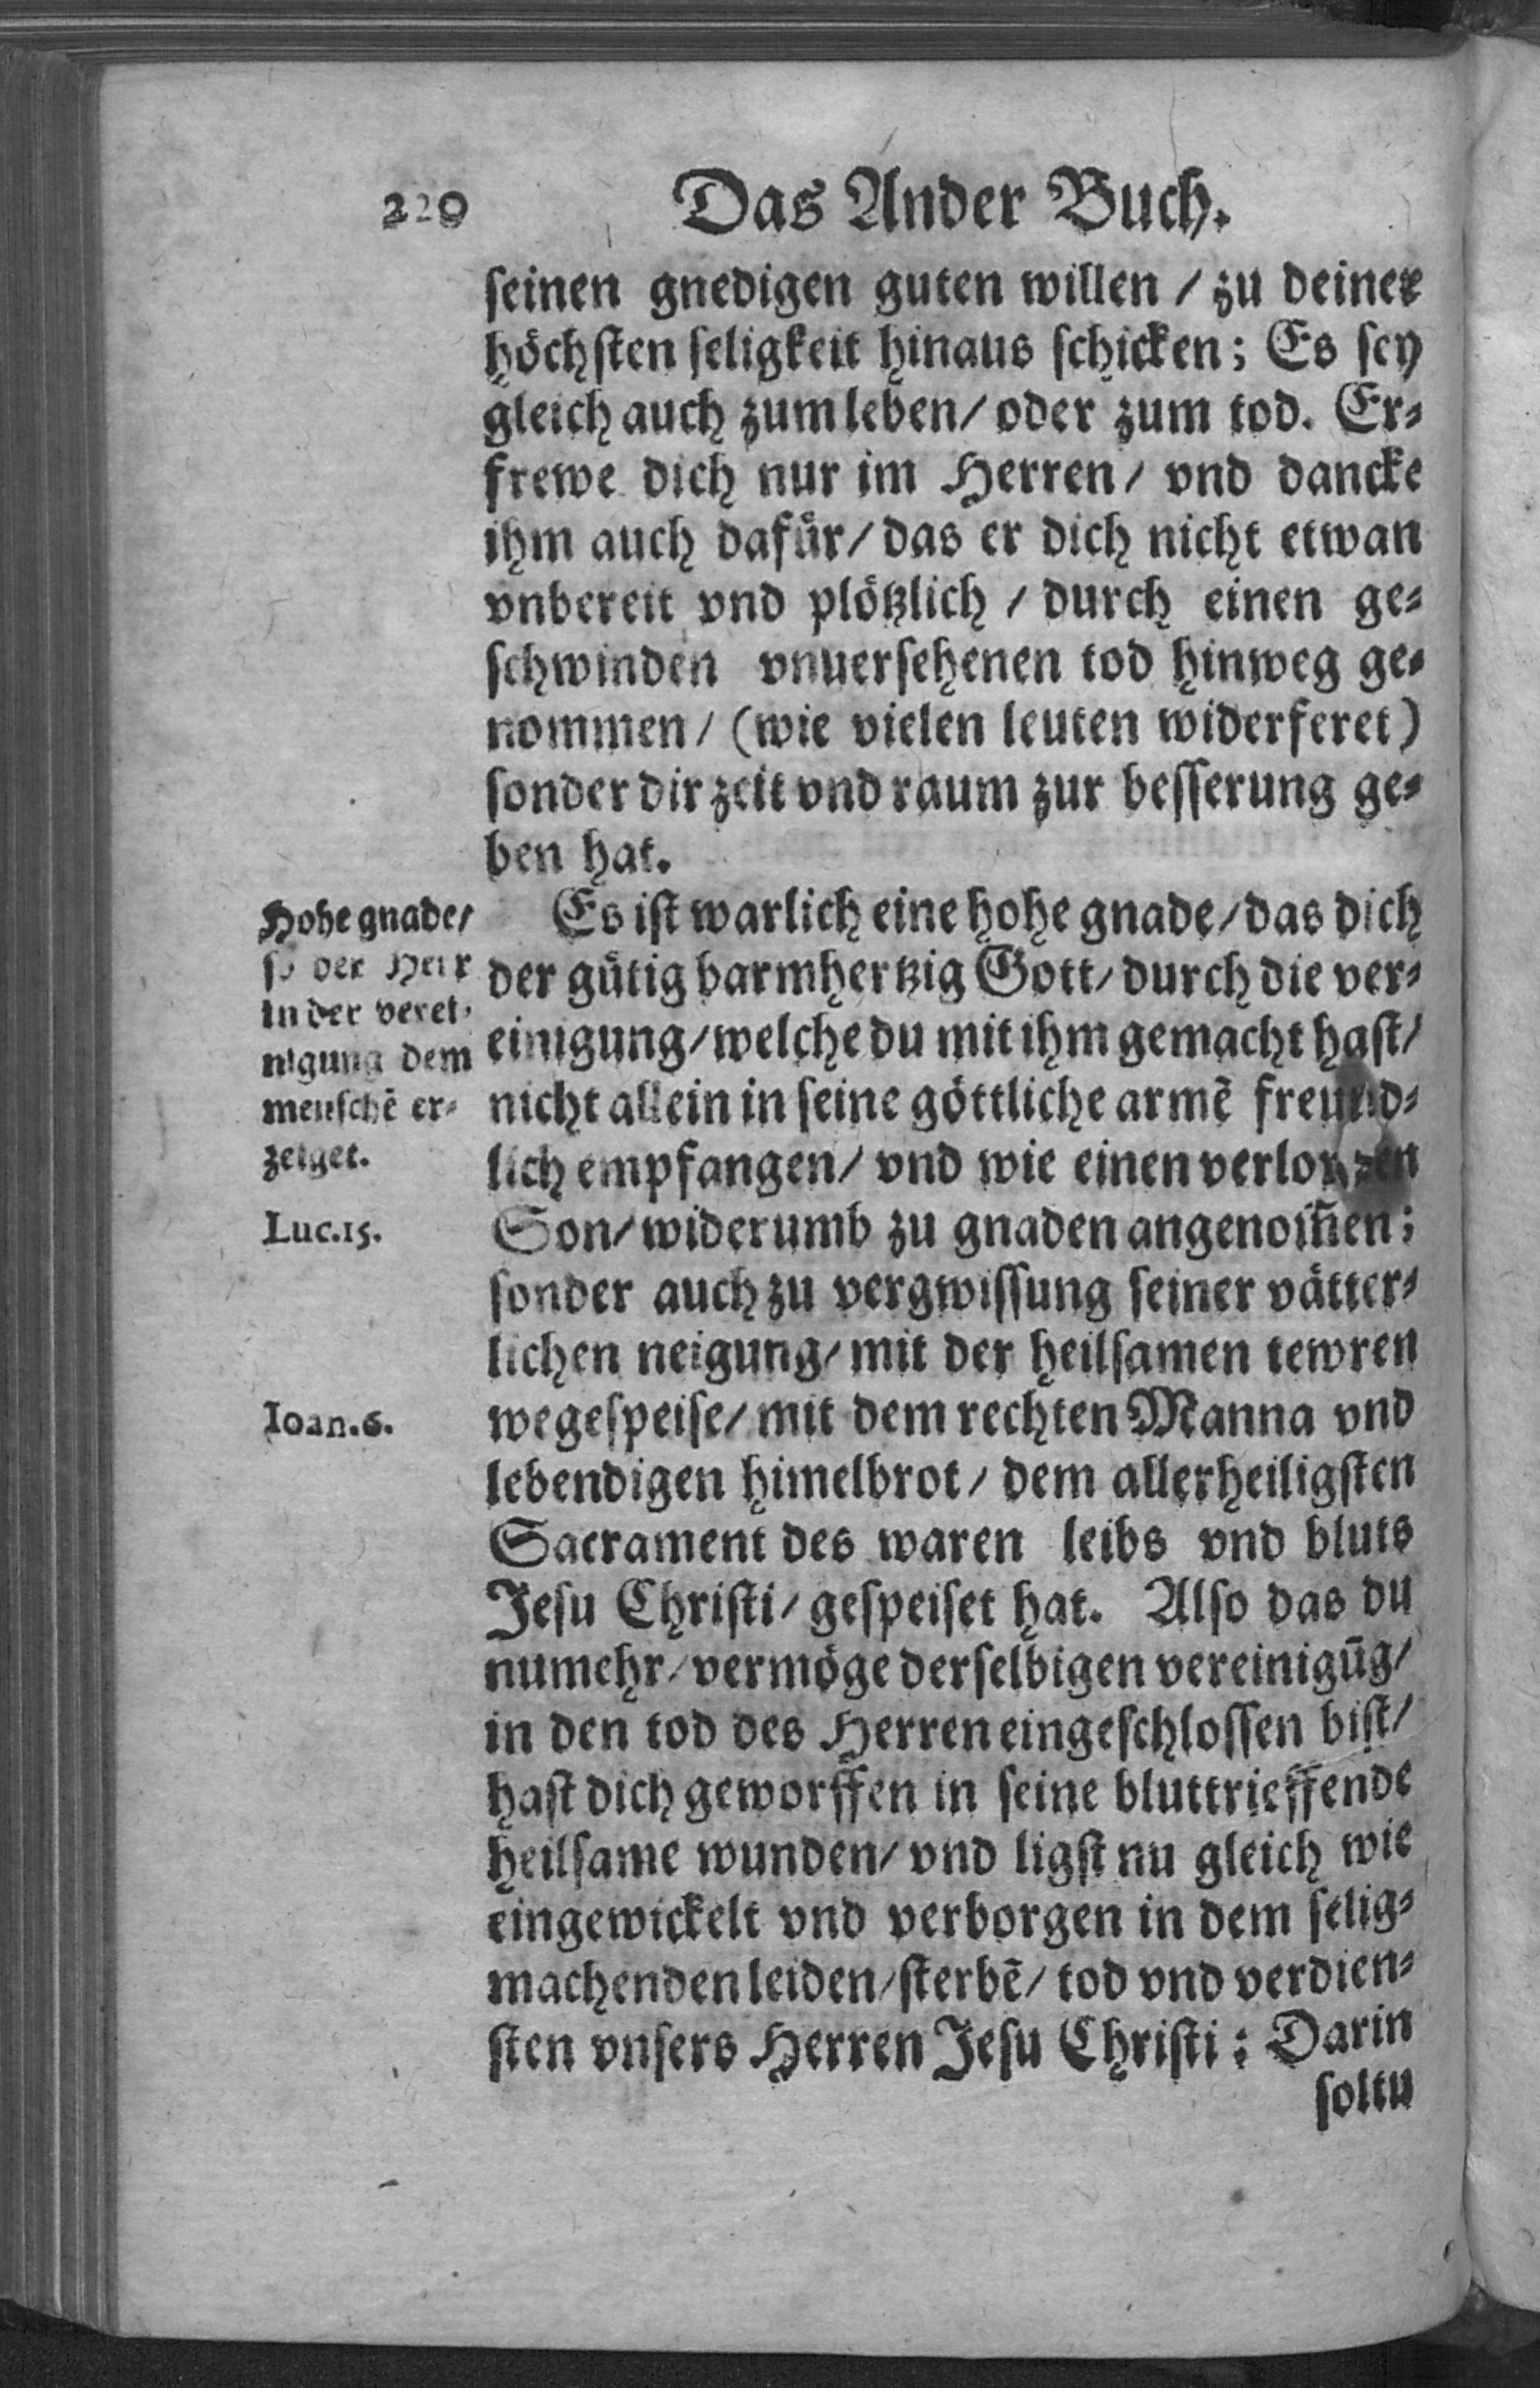 220 Das Ander Buch.
seinen gnedigen guten willen / zu deiner
höchsten seligkeit hinaus schicken; Es sey
gleich auch zum leben/ oder zum tod. Er-
frewe dich nur im Herren/ vnd dancke
ihm auch dafür/ das er dich nicht etwan
vnbereit vnd plötzlich / durch einen ge-
schwinden vnuersehenen tod hinweg ge-
nommen/ (wie vielen leuten widerferet)
sonder dir zeit vnd raum zur besserung ge-
ben hat.
Es ist warlich eine hohe gnade/ das dich
der gütig barmhertzig Gott/ durch die ver-
einigung/ welche du mit ihm gemacht hast/
nicht allein in seine göttliche armē freund-
lich empfangen/ vnd wie einen verlornen
Son/ widerumb zu gnaden angenom̄en;
sonder auch zu vergwissung seiner vätter-
lichen neigung/ mit der heilsamen tewren
wegespeise/ mit dem rechten Manna vnd
lebendigen himelbrot/ dem allerheiligsten
Sacrament des waren leibs vnd bluts
Jesu Christi/ gespeiset hat. Also das du
numehr/ vermöge derselbigen vereinigūg/
in den tod des Herren eingeschlossen bist/
hast dich geworffen in seine bluttrieffende
heilsame wunden/ vnd ligst nu gleich wie
eingewickelt vnd verborgen in dem selig-
machenden leiden/ sterbē/ tod vnd verdien-
sten vnsers Herren Jesu Christi: Darin
soltu
Hohe gnade/
so der Herr
in der verei-
nigung dem
menschē er-
zeiget.
Luc.15.
Ioan.6.